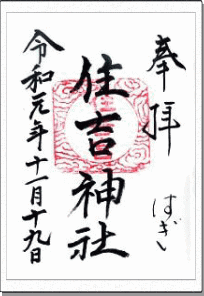 奉拝
はぎ
住吉神社
令和元年十一月十九日